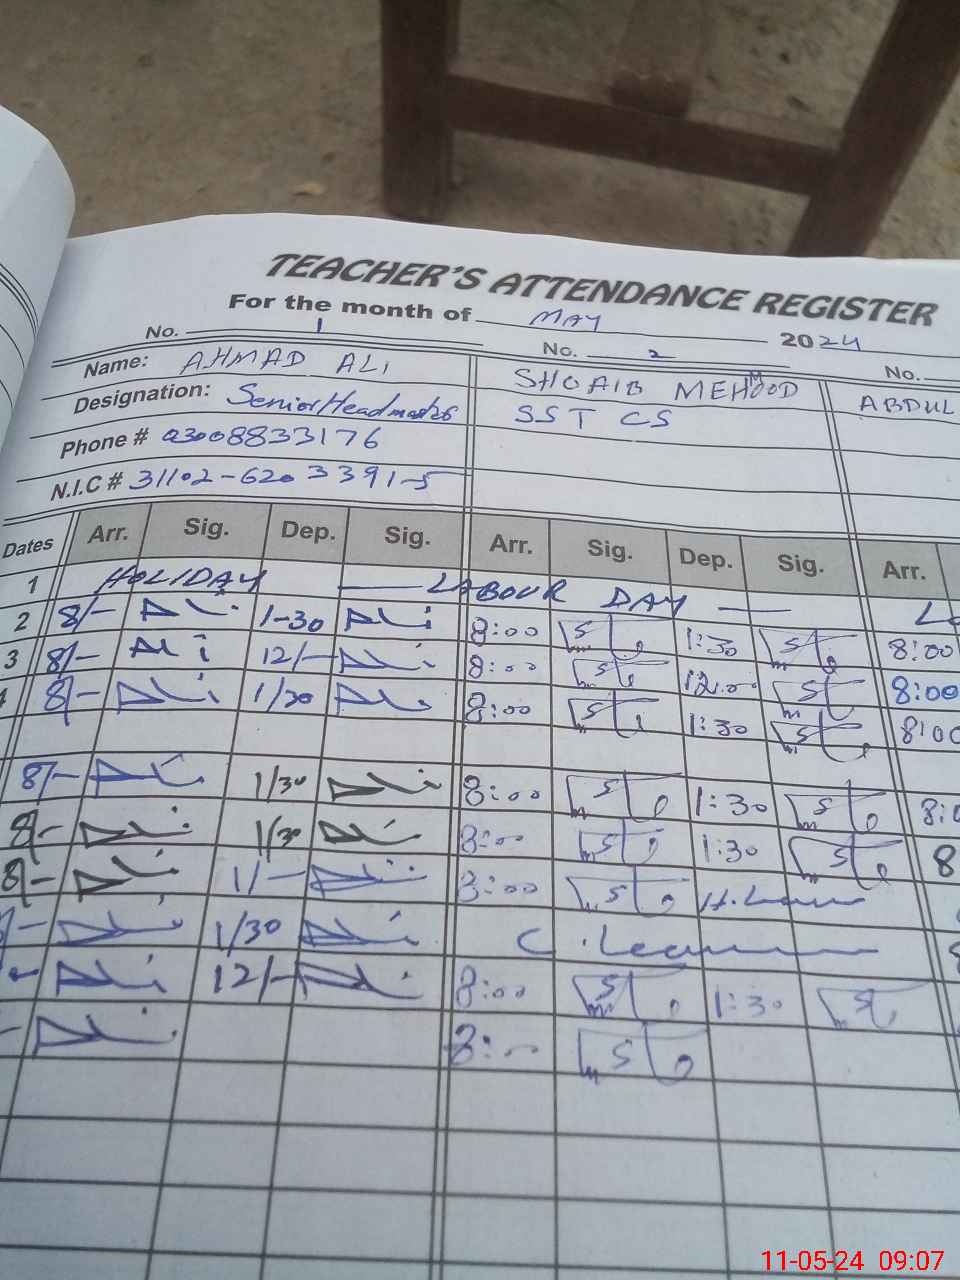 TEACHER'S ATTENDANCE REGISTER
For the month of MAY 2024
No. 1 No. 2 No.
Name: AHMAD ALI SHOAIB MEHMOOD ABDUL
Designation: Senior Headmaster SST CS
Phone # 03008833176
N.I.C # 31102-6203391-5
Dates Arr. Sig. Dep. Sig. Arr. Sig. Dep. Sig. Arr.
1 HOLIDAY — LABOUR DAY —
2 8/- ALi 1-30 ALi 8:00 1:30 8:00
3 8/- ALi 12/- ALi 8:00 12:00 8:00
4 8/- ALi 1/30 ALi 8:00 1:30 8:00
8/- ALi 1/30 ALi 8:00 1:30
8/- ALi 1/30 ALi 8:00 1:30 8
8/- ALi 1/- ALi 8:00
ALi 1/30 ALi
ALi 12/- ALi 8:00 1:30
ALi 8:00
11-05-24 09:07